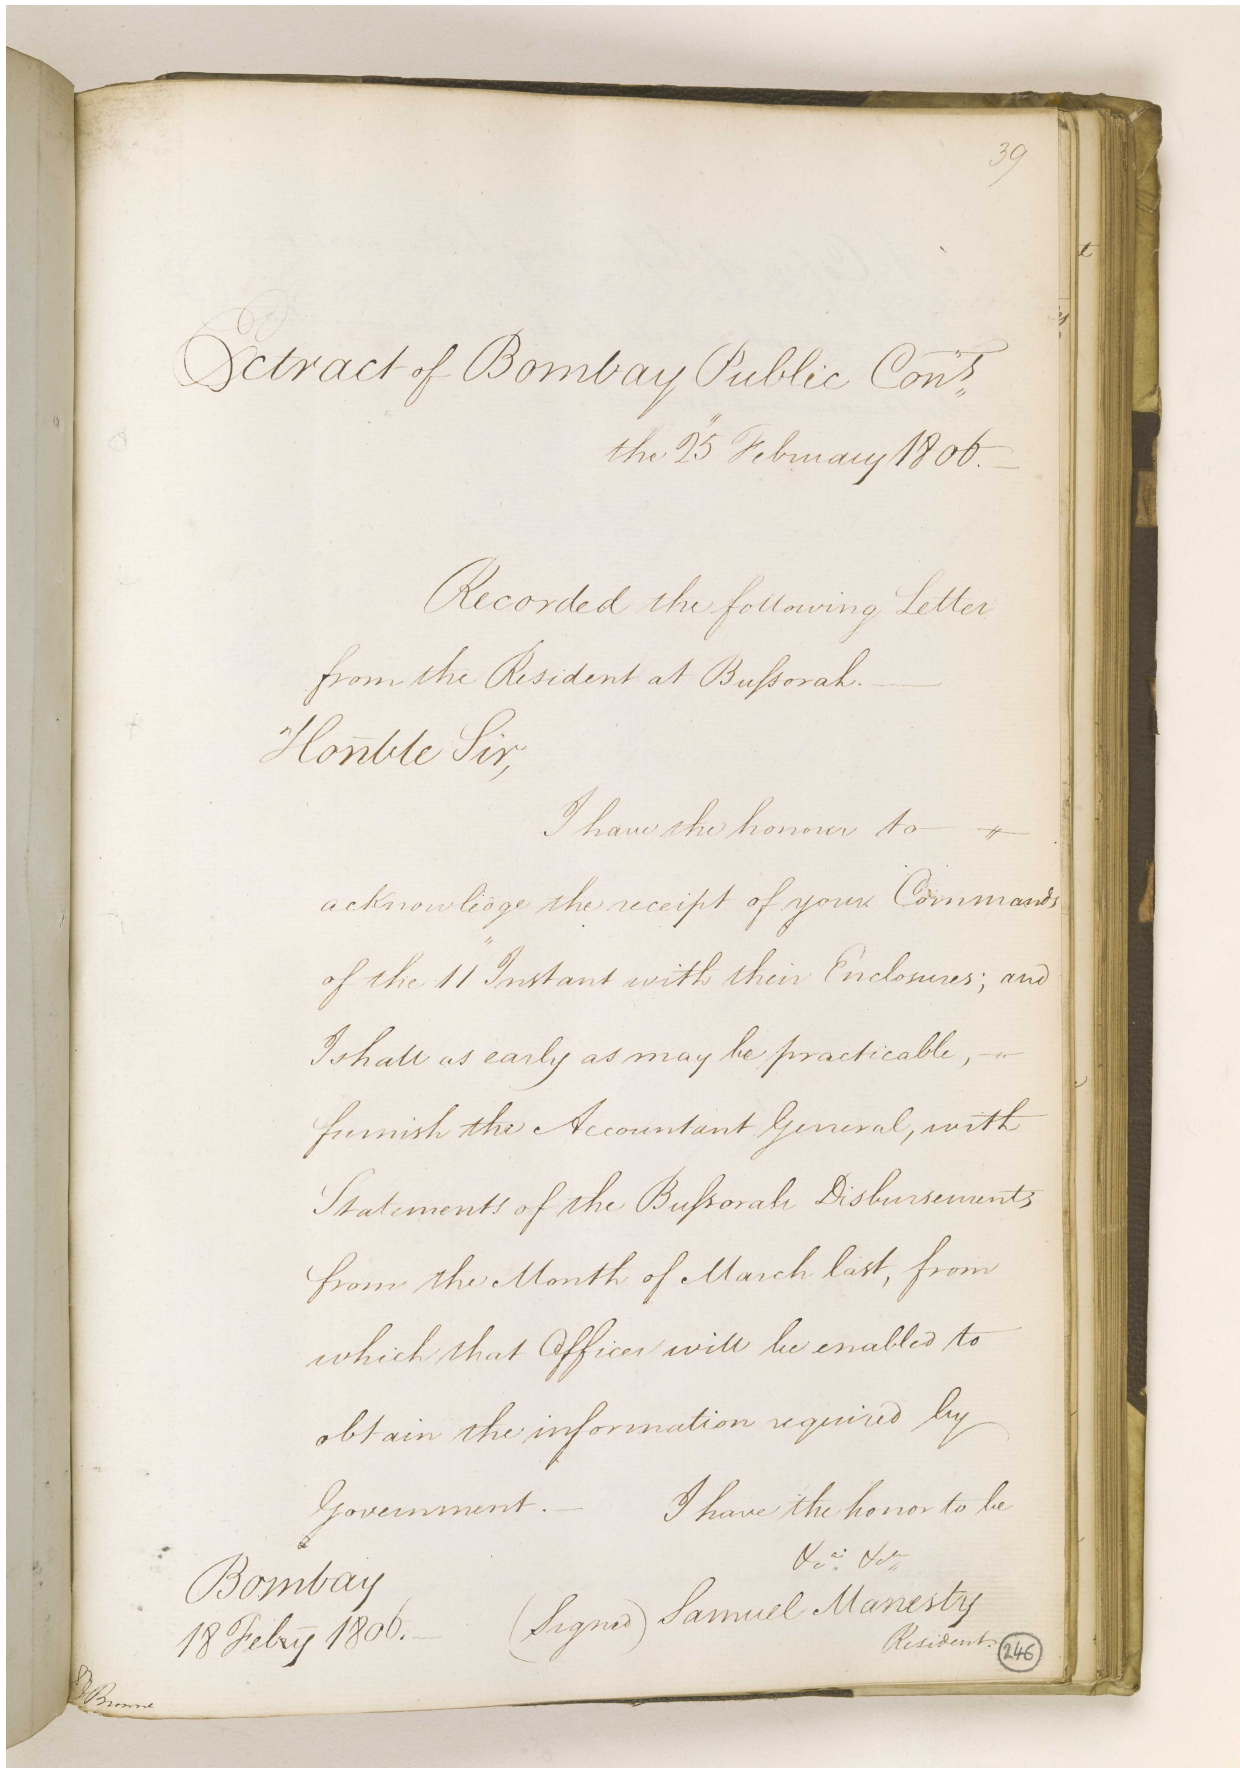 39
Extract of Bombay Public Cons
the 25" February 1806.
Recorded the following Letter
from the Resident at Bussorah.
Honble Sir,
I have the honour to
acknowledge the receipt of your Commands
of the 11" Instant with their Enclosures; and
I shall as early as may be practicable,
furnish the Accountant General, with
Statements of the Bussorah Disbursements
from the Month of March last, from
which that Officer will be enabled to
obtain the information required by
Government. I have the honor to be
&ca: &ca
Bombay
(Signed) Samuel Manesty
18 Febry 1806.
Resident.
246
Browne